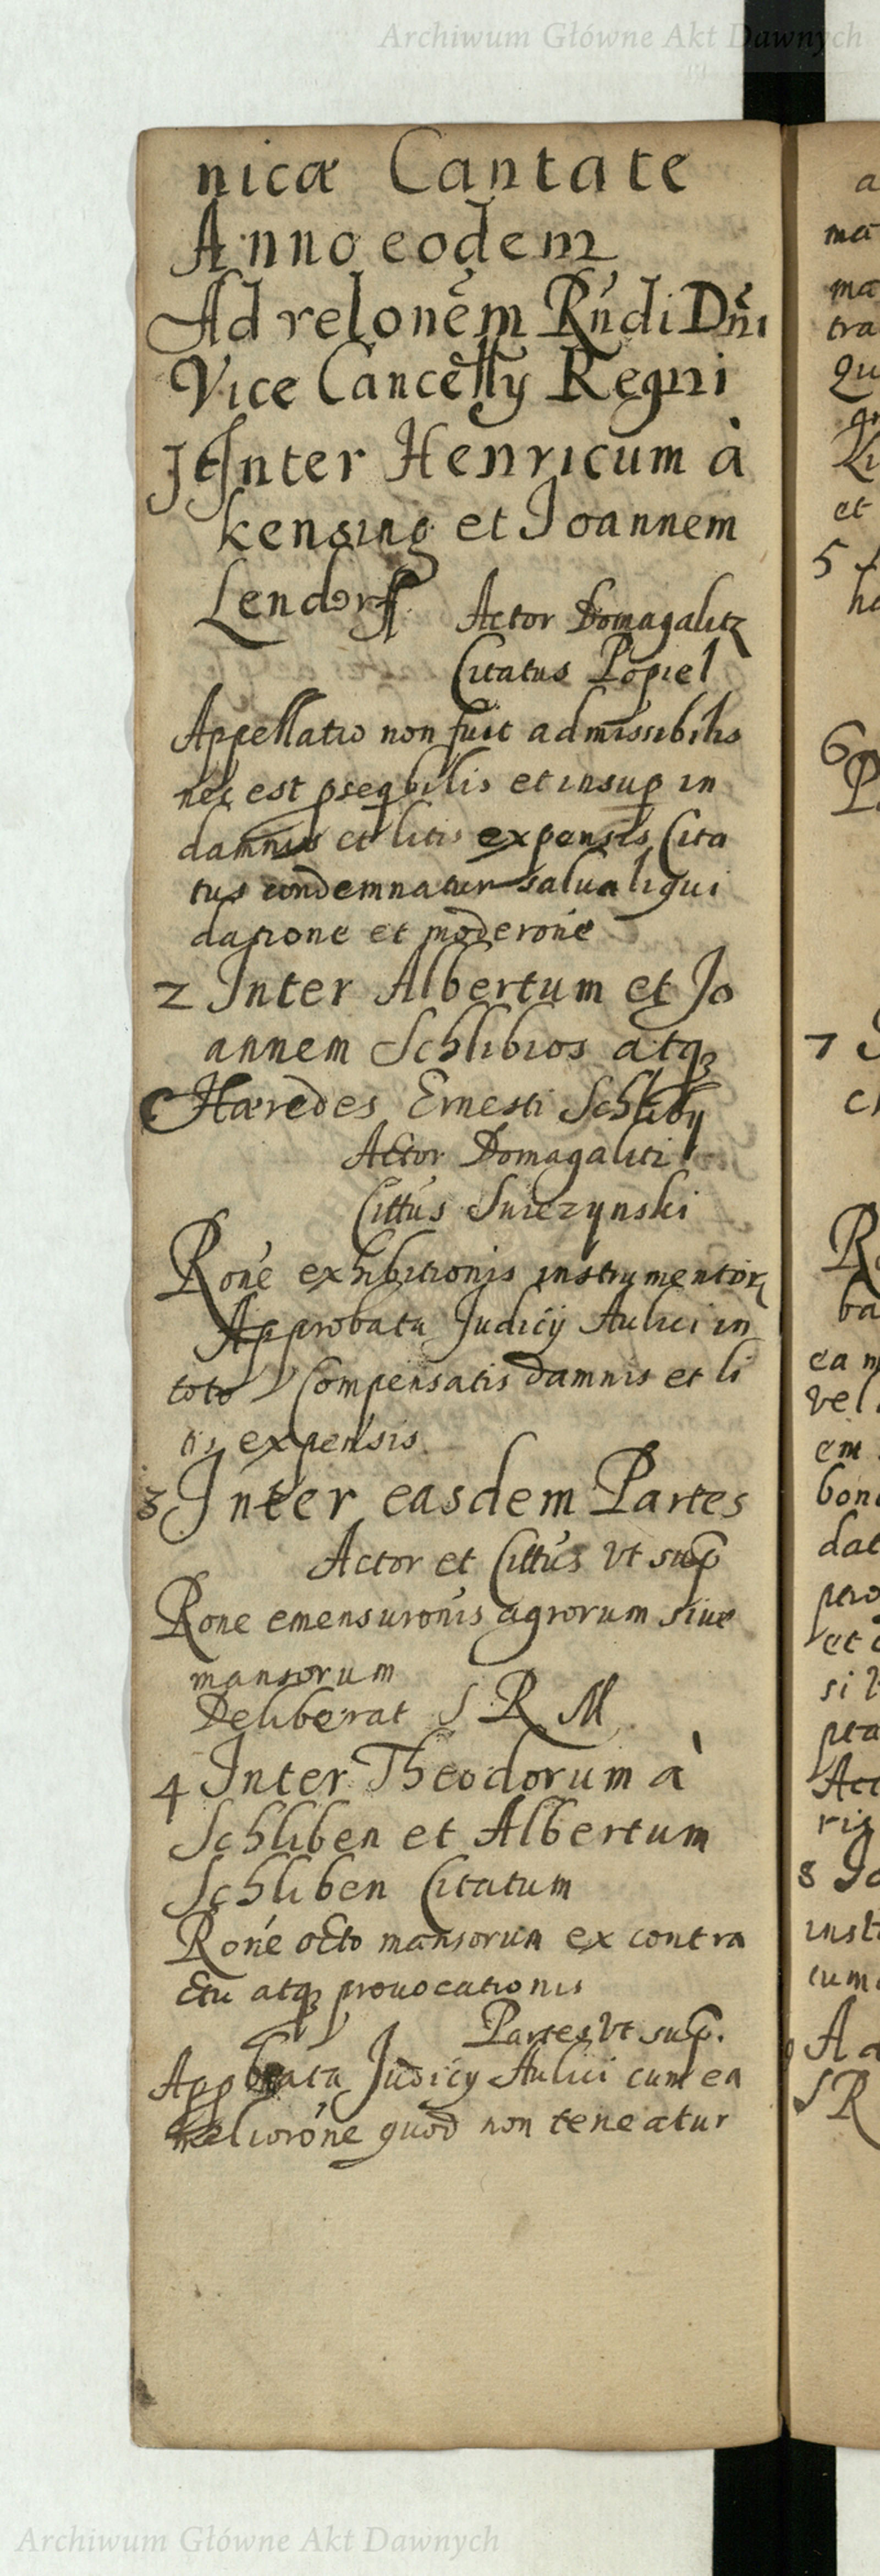 Archiwum Główne Akt Dawnych
nicæ Cantate
Anno eodem
Ad relonẽm Rńdi Dńi
Vice Cancellý Regni
1 Inter Henricum à
kensing et Joannem
Lendorff
Actor Domagalitz
Citatus Popiel
Appellatio non fuit admissibilis
nec est pseqbilis et insup in
damnis et litis expensis Cita
tus condemnatur salua liqui
datione et moderoné
2 Inter Albertum et Jo
annem Schlibios atq
Hæredes Ernesti Schliby
Actor Domagaliti
Cittus Swiezynski
Roné exhibitionis instrumentor
Approbata Judicij Aulici in
toto Compensatis damnis et li
tis expensis
3 Inter easdem Partes
Actor et Cittus vt sup
Rone emensuronis agrorum siue
mansorum
Deliberat S R M
4 Inter Theodorum à
Schliben et Albertum
Schliben Citatum
Roné octo mansorum ex contra
ctu atq prouocationis
Partes vt sup.
Appbata Judicij Aulici cum ea
melioroné quod non teneatur
a
ma
ma
tra
Qu
et
5
6
7
ba
ea m
vel
em
bon
dat
et
si
Act
8 Jo
inst
cum
A
S R
Archiwum Główne Akt Dawnych